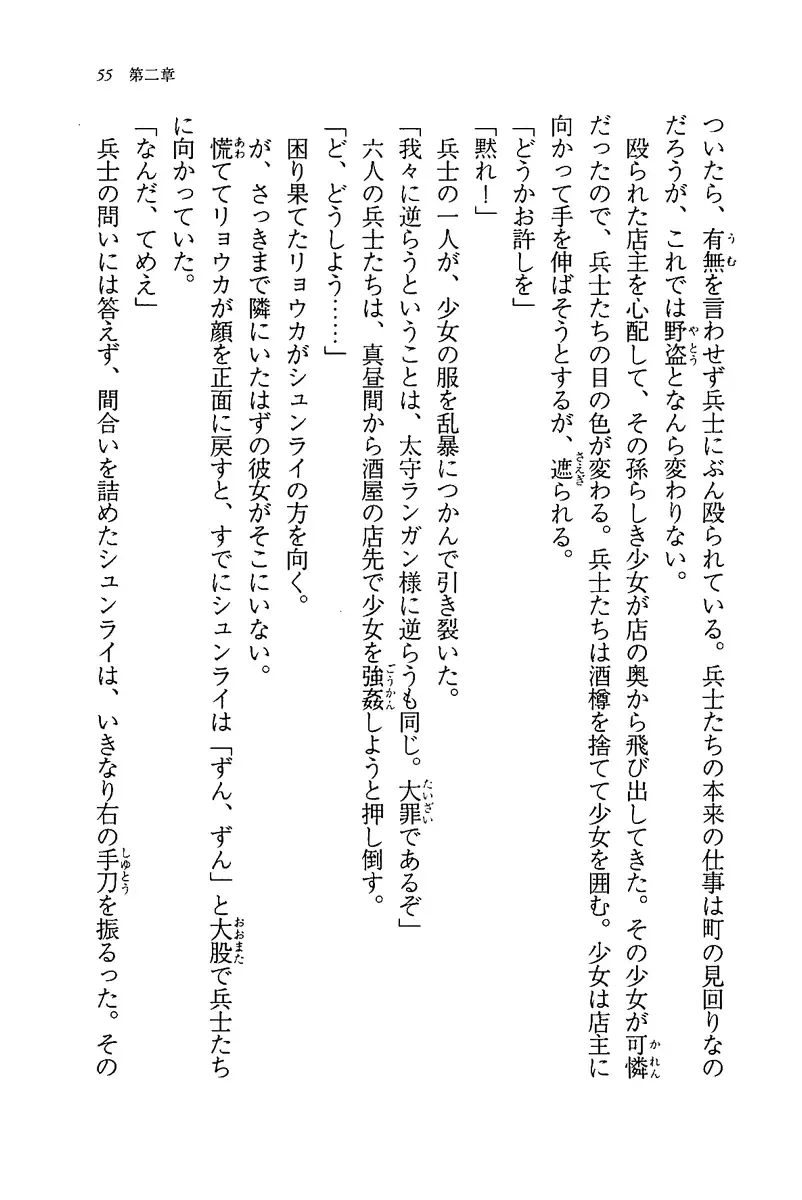 55　第二章
ついたら、有無を言わせず兵士にぶん殴られている。兵士たちの本来の仕事は町の見回りなの
だろうが、これでは野盗となんら変わりない。
　殴られた店主を心配して、その孫らしき少女が店の奥から飛び出してきた。その少女が可憐
だったので、兵士たちの目の色が変わる。兵士たちは酒樽を捨てて少女を囲む。少女は店主に
向かって手を伸ばそうとするが、遮られる。
「どうかお許しを」
「黙れ！」
　兵士の一人が、少女の服を乱暴につかんで引き裂いた。
「我々に逆らうということは、太守ランガン様に逆らうも同じ。大罪であるぞ」
　六人の兵士たちは、真昼間から酒屋の店先で少女を強姦しようと押し倒す。
「ど、どうしよう……」
　困り果てたリョウカがシュンライの方を向く。
　が、さっきまで隣にいたはずの彼女がそこにいない。
　慌ててリョウカが顔を正面に戻すと、すでにシュンライは「ずん、ずん」と大股で兵士たち
に向かっていた。
「なんだ、てめえ」
　兵士の問いには答えず、間合いを詰めたシュンライは、いきなり右の手刀を振るった。その